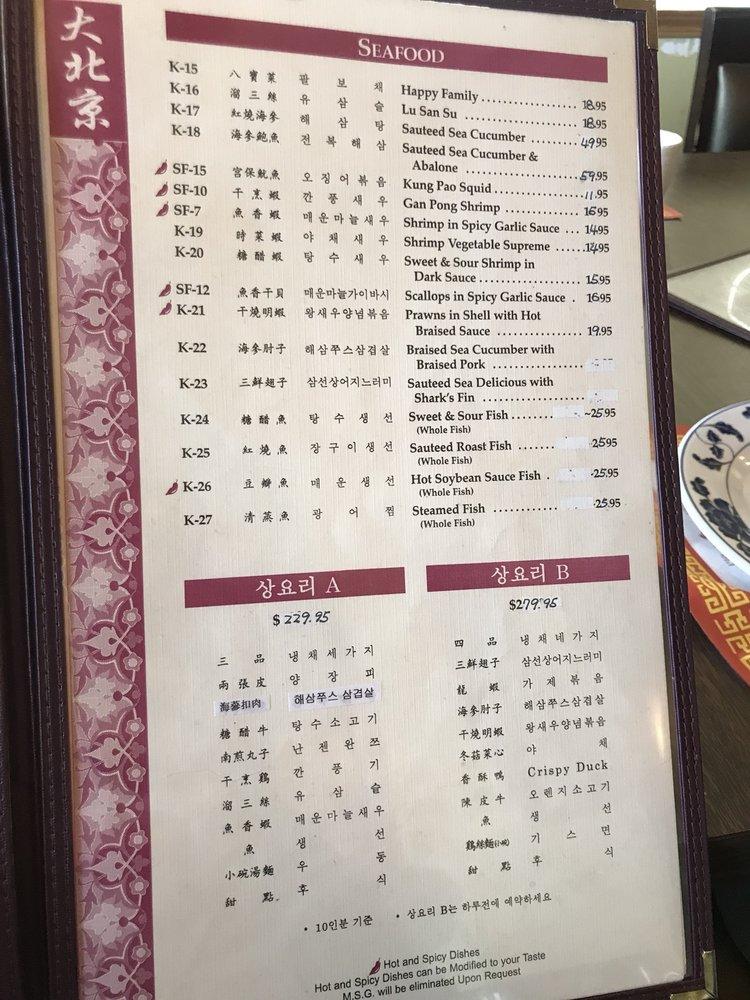 大北京
SEAFOOD
K-15 八寶菜 팔보채 Happy Family 18.95
K-16 溜三絲 유삼슬 Lu San Su 18.95
K-17 紅燒海參 해삼탕 Sauteed Sea Cucumber 49.95
K-18 海參鮑魚 전복해삼 Sauteed Sea Cucumber &
Abalone 59.95
SF-15 宮保魷魚 오징어볶음 Kung Pao Squid 11.95
SF-10 干烹蝦 깐풍새우 Gan Pong Shrimp 15.95
SF-7 魚香蝦 매운마늘새우 Shrimp in Spicy Garlic Sauce 14.95
K-19 時菜蝦 야채새우 Shrimp Vegetable Supreme 14.95
K-20 糖醋蝦 탕수새우 Sweet & Sour Shrimp in
Dark Sauce 15.95
SF-12 魚香干貝 매운마늘가이바시 Scallops in Spicy Garlic Sauce 16.95
K-21 干燒明蝦 왕새우양념볶음 Prawns in Shell with Hot
Braised Sauce 19.95
K-22 海參肘子 해삼쭈스삼겹살 Braised Sea Cucumber with
Braised Pork
K-23 三鮮翅子 삼선상어지느러미 Sauteed Sea Delicious with
Shark's Fin
K-24 糖醋魚 탕수생선 Sweet & Sour Fish 25.95
(Whole Fish)
K-25 紅燒魚 장구이생선 Sauteed Roast Fish 25.95
(Whole Fish)
K-26 豆瓣魚 매운생선 Hot Soybean Sauce Fish 25.95
(Whole Fish)
K-27 清蒸魚 광어찜 Steamed Fish 25.95
(Whole Fish)
상요리 A
$229.95
三品 냉채세가지
兩張皮 양장피
海蔘扣肉 해삼쭈스 삼겹살
糖醋牛 탕수소고기
南煎丸子 난젠완쯔
干烹鶏 깐풍기
溜三絲 유삼슬
魚香蝦 매운마늘새우
魚 생선
小碗湯麵 우동
甜點 후식
상요리 B
$279.95
四品 냉채네가지
三鮮翅子 삼선상어지느러미
龍蝦 가제볶음
海參肘子 해삼쭈스삼겹살
干燒明蝦 왕새우양념볶음
冬菇菜心 야채
香酥鴨 Crispy Duck
陳皮牛 오렌지소고기
魚 생선
鶏絲麵(小碗) 기스면
甜點 후식
• 10인분 기준 • 상요리 B는 하루전에 예약하세요
Hot and Spicy Dishes
Hot and Spicy Dishes can be Modified to your Taste
M.S.G. will be eliminated Upon Request